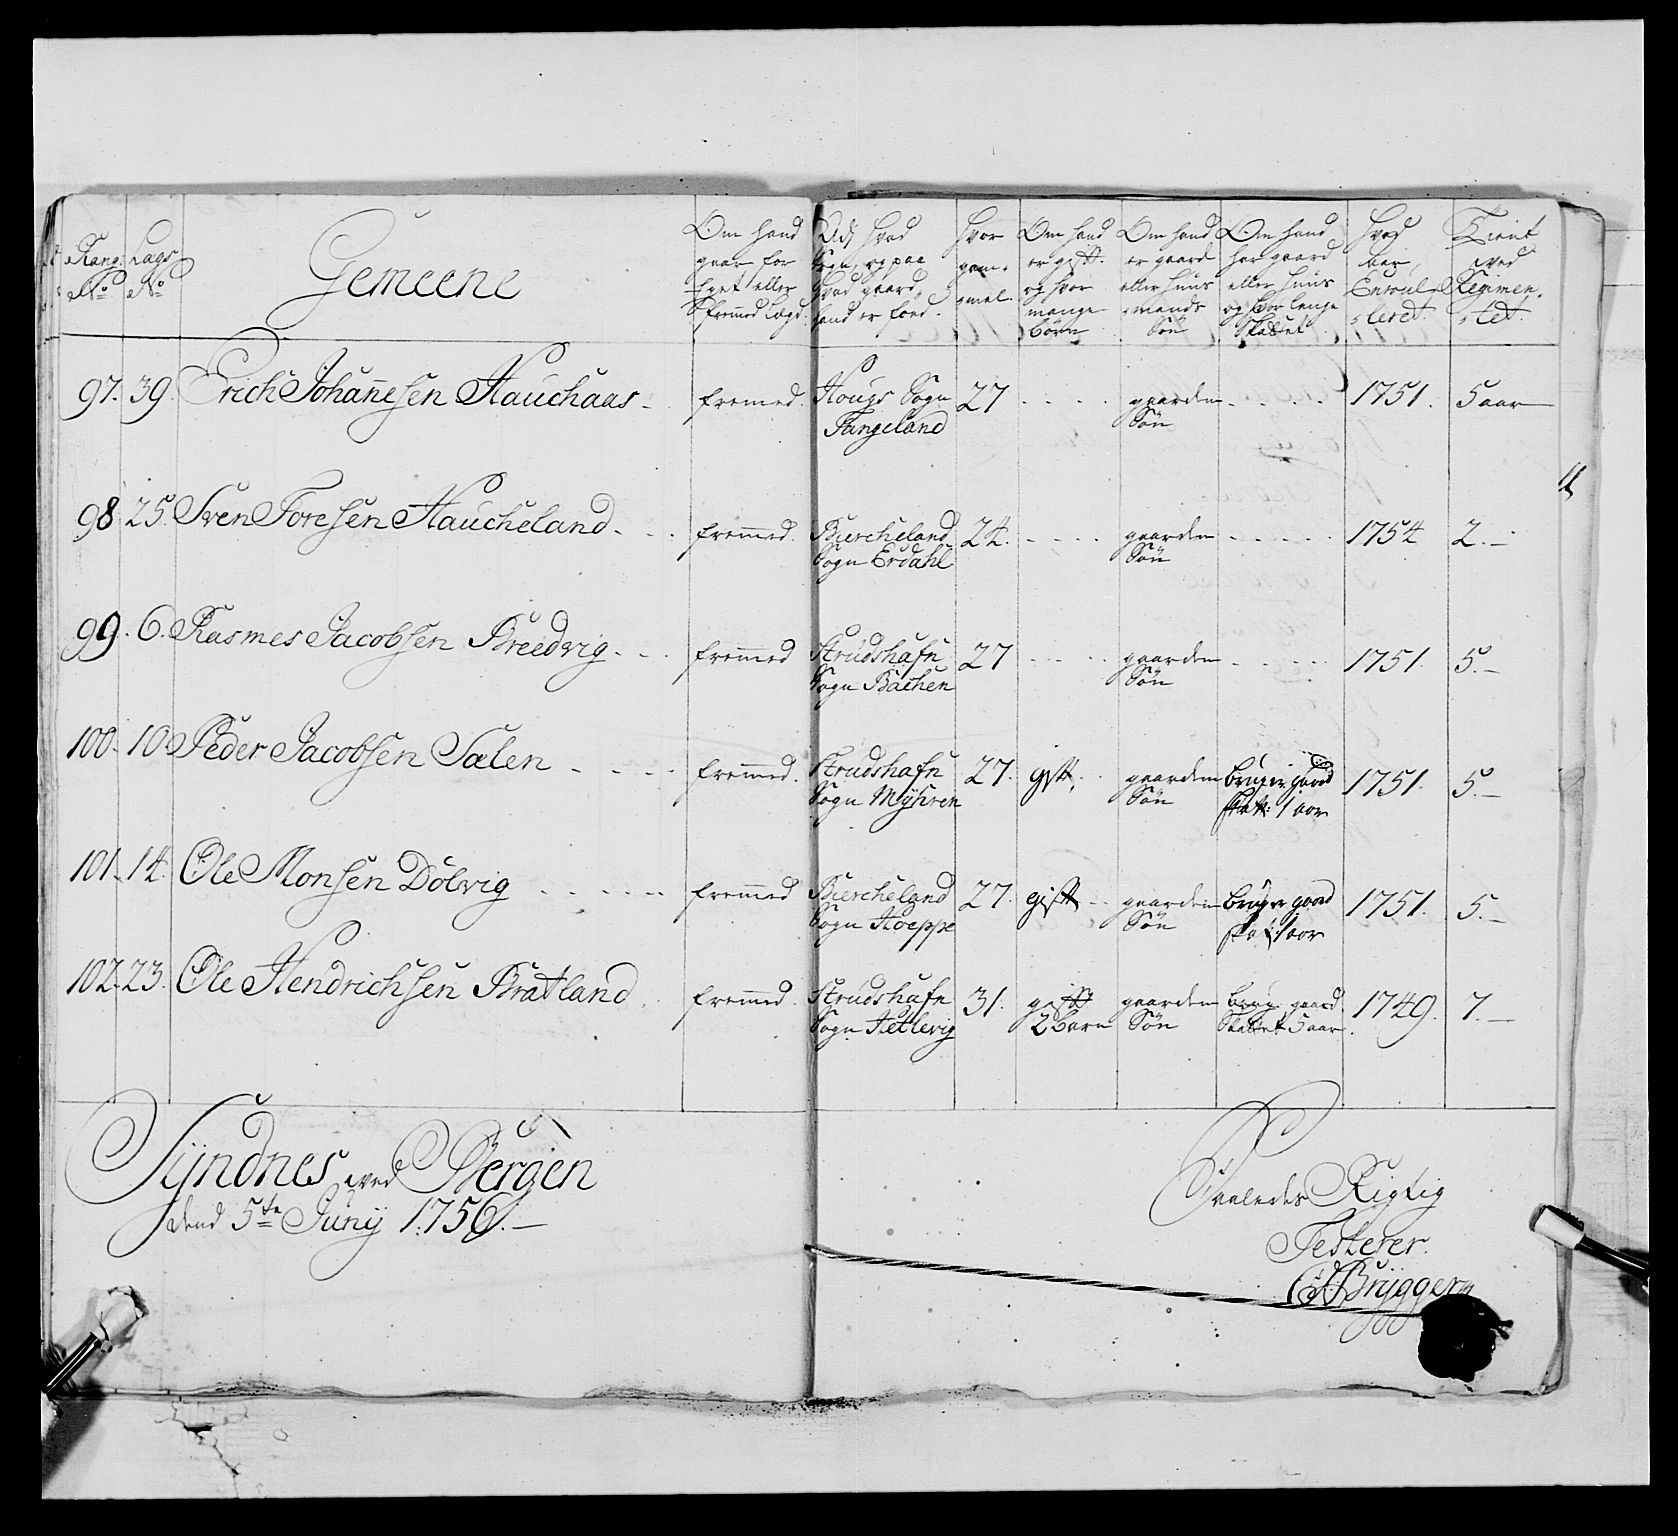 Rang No
Lags No
Gemeene
Om hand gaar for Eget eller fremmed Lægd.
Udj hvad Sogn, og paa hvad gaard hand er föed.
Hvor gam- mel.
Om hand er gift. og hvor mange börn
Om hand er gaard eller huus mands Sön
Om hand har gaard eller huus og hvor lenge Skattet
Hvad aar, Enroul- leret.
Tient ved Regimen- tet.
97. 39. Erich Johannesen Hauchaas fremed. Hougs Sogn Tangeland 27 gaardm Sön 1751. 5 aar
98 25. Sven Toresen Haucheland fremmed. Biercheland Sogn Erdahl 24. gaardm Sön 1754 2.
99. 6. Rasmes Jacobsen Breedvig fremmed Strudshafn Sogn Bachen 27 gaardm Sön 1751. 5.
100. 10. Peder Jacobsen Sælen fremmed. Strudshafn Sogn Myhren 27. gift. gaardm Sön bruger gaard skatt: 1 aar 1751. 5.
101. 14. Ole Monsen Dölvig fremmed Biercheland Sogn Hoeppe 27. gift gaardm Sön bruger gaard skat 1 aar 1751. 5.
102. 23. Ole Hendrichsen Bratland fremmed. Strudshafn Sogn Hetlevig 31. gift 2 barn gaardm Sön brug: gaard Skattet 5 aar 1749. 7.
Tyndnes ved Bergen
dend 5te Juny 1756.
Saaledes Rigtig
Testerer.
Brygger